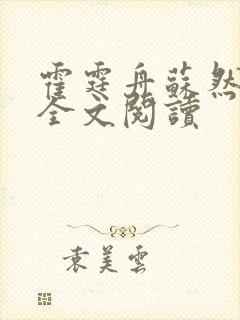 霍霆舟蘇然
全文閱讀
袁美雲